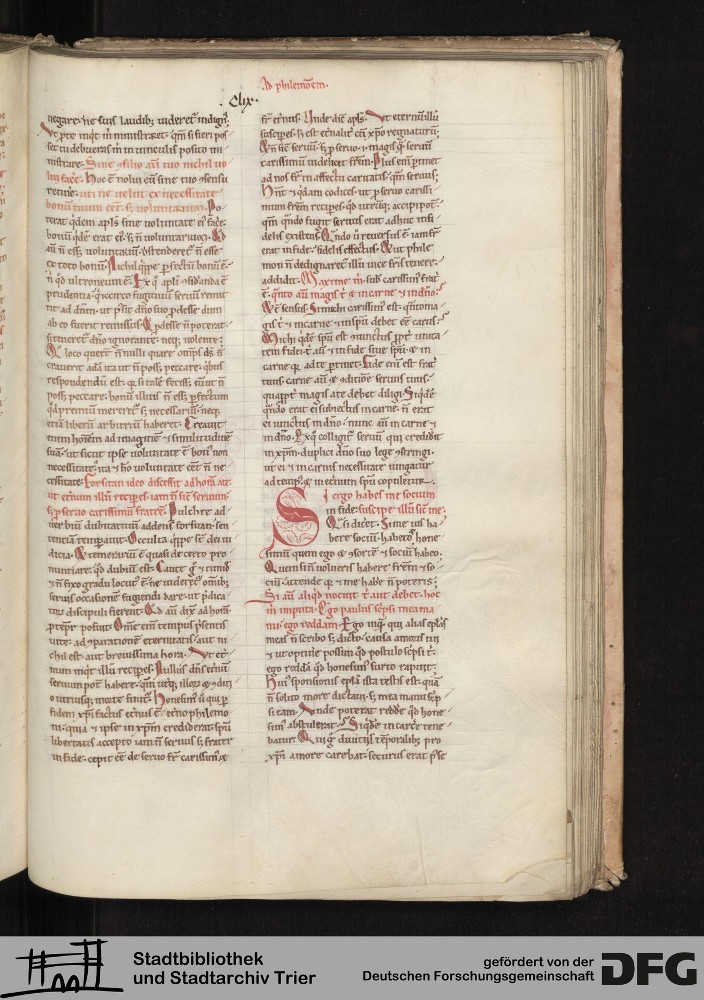 Ad philemoem.
Clix.
negare. ne suis laudib; uideret indign.
Vt pte inqt m ministraret. qm si fieri pos
set tu debueras m in uinculis posito mi
nistrare. Sine ɔsilio aut tuo nichil uo
lui face. Hoc e nolui cu sine tuo ɔsensu
retine. uti ne uelut ex necessitate
bonu tuum eet. s; uoluntariu.
terat qdem apls sine uoluntate ei face.
bonu qde erat ei. s; n uoluntariu.
ex toto bonu. Nichil qppe pfectu bonu e.
n qd ultroneum e. Ex q apli ɔsidanda e
prudentia. qui fugitiuu seruu remit
tit ad dnm. ut psit dno suo pdesse dum
ab eo fuerit remissus.
si teneret dno ignorante. neq; uolente.
loco querit
crauerit
respondendu est.
poss; peccare. bonu illius n ess; pfectum
qd premiu mereret. s; necessariu. neq;
etia liberu arbitriu haberet. Creauit
enim hoiem ad imagine & similitudine
sua. ut sicut ipse uoluntate e bon n non
necessitate. ita & ho uoluntate eet n ne
cessitate. Forsitan ideo discessit ad hora a te.
ut eternu illu recipes. iam n sic seruum.
s; p seruo carissimu fratre. Pulchre ad
uerbiu dubitatiuu addens forsitan. sen
tentia temperauit. Occulta qppe st dei iu
dicia. & temerariu e quasi de certo pro
nuntiare. qd dubiu est. Caute
& n fixo gradu locut e. ne uideret omib;
seruis occasione fugiendi dare. ut pdica
toris discipuli fierent. Qd aut dix ad hora.
p tepr posuit. Ome eni tempus psentis
uite. ad ɔparatione eternitatis. aut ni
chil est. aut breuissima hora. Vt eter
num inqt illu recipes. Nullus dns eternu
seruum pot habere. qm
o utriusq; morte finit. Honesim
fidem xpi factus eternus e. eterno philemo
ni. quia & ipse in xpm crediderat. spu
libertatis accepto iam n seruus s; frater
in fide. cepit ee de seruo fr carissim &
fr eternus. Unde dic apls. Vt eternu illu
suscipes. h est eternalit cu xpo regnaturu.
Qn sic seruu. s; p seruo. magis q seruu
carissimu uidelicet frem. Plus eni ptinet
ad nos fr in affectu caritatis. qm seruus.
Hnt & qdam codices. ut p seruo carissi
mum frem recipes. qd utruq; accipi pot.
qm qndo fugit seruus erat adhuc infi
delis existens. Qndo u reuersus e iam fr
erat in fide. fidelis effectus. & ut phile
mon n dedignaret illu uice fris tenere.
addidit. Maxime m. sub. carissim frat
e. qnto aut magis t & in carne & in dno.
& e sensus. Si michi carissim est. qntoma
gis t & in carne & in spu debet ee carus.
Michi qde spu est iunctus ppt unita
tem fidei. t aut & in fide siue spu & in
carne q ad te ptinet. Fide eni est frat
tuus. carne aut & ɔditione seruus tuus.
quappt magis a te debet diligi.
qndo erat ei subiectus in carne. n erat
ei iunctus in dno. nunc aut in carne &
in dno. Ex q colligit seruu qui credidit
in xpm. duplici dno suo lege ɔstringi.
ut ei & in carnis necessitate iungatur
ad temp. & in eternum spu copuletur.
Si ergo habes me socium
in fide. suscipe illu sic me.
Qsi dicet. Si me uis ha
bere sociu. habeto & hone
simu quem ego & ɔsorte & sociu habeo.
Quem si n uolueris habere frem & so
ciu. attende qa & me habe n poteris.
Si aut aliqd nocuit t aut debet. hoc
m imputa. Ego paulus scpsi mea ma
nu. ego reddam. Ego inq; qui alias eplas
meas n scribo s; dicto. causa amoris tui
& ut optime possim qd postulo scpsi t.
ego redda qd honesimus furto rapuit.
Hui sponsionis epla ista testis est. qua
n solito more dictaui. s; mea manu scp
si eam. Unde poterat redde qd hone
sim abstulerat. Siqde in carce tene
batur. & diuitiis teporalib; pro
xpi amore carebat. securus erat p se
Stadtbibliothek
und Stadtarchiv Trier
gefördert von der
Deutschen Forschungsgemeinschaft
DFG